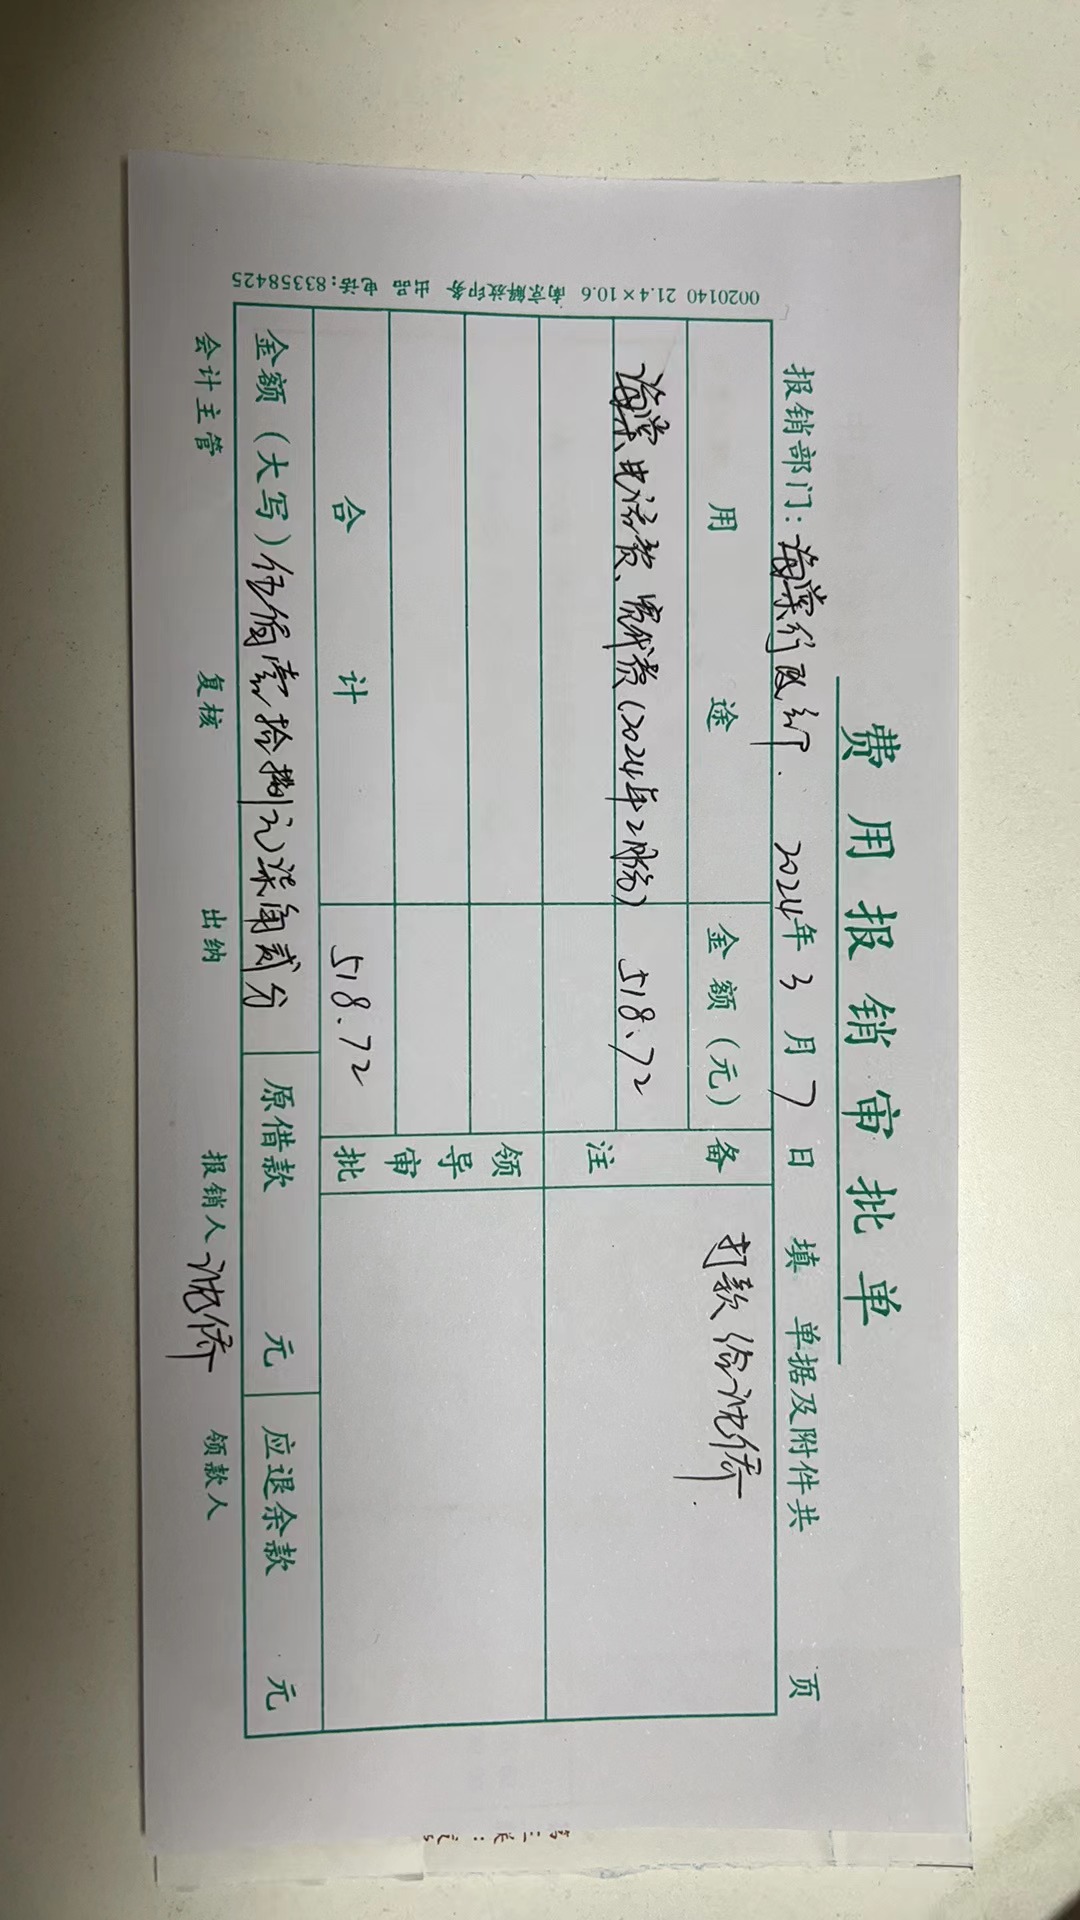 费用报销审批单
报销部门：海棠行政部. 2024年3月7日填 单据及附件共 页
用途 金额（元） 备注 打款给沈侨
海棠电话费、宽带费（2024年2月份） 518.72
领导审批
合计 518.72
金额（大写）伍佰壹拾捌元柒角贰分 原借款 元 应退余款 元
会计主管 复核 出纳 报销人 沈侨 领款人
0020140 21.4×10.6 南京解放印务 出品 电话：83358425